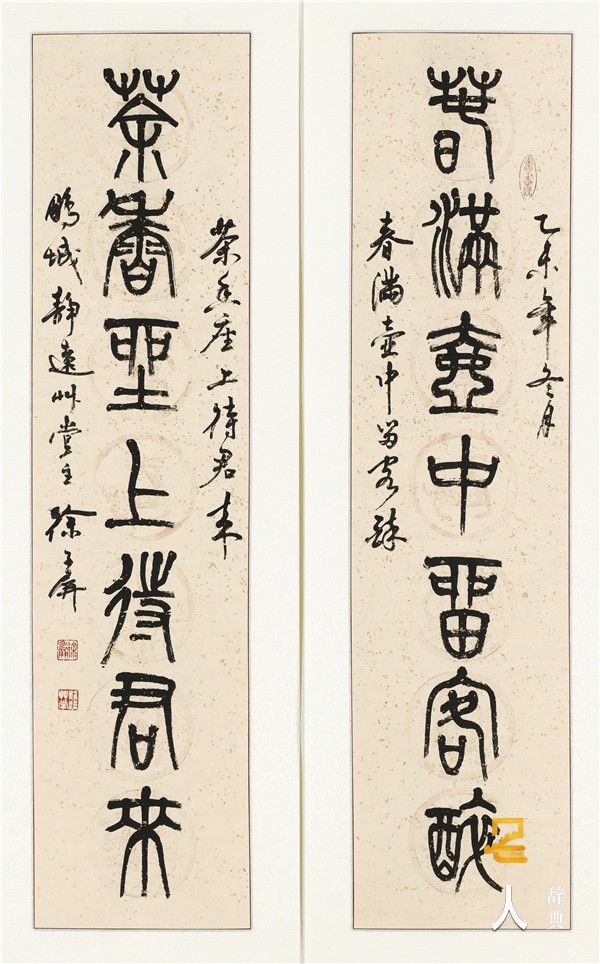 乙未年冬月
春滿壺中留客醉
春滿壺中留客醉
茶香座上待君來
茶香座上待君来
鹏城静遠艸堂主徐子屏
人
辞典